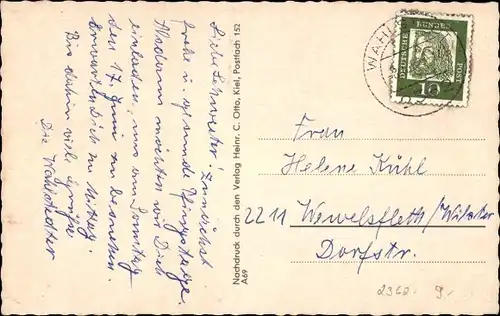 Liebe Schwester! Zunächst
frohe u. gesunde Pfingsttage.
Wiederum möchten wir Dich
einladen, uns am Sonntag
den 17. Juni zu besuchen.
Erwarten Dich zu Mittag.
Bis dahin viele Grüße
Die Wahlstedter
Nachdruck durch den Verlag Heinr. C. Otto, Kiel, Postfach 152
A69
WAHL
DEUTSCHE
BUNDES
POST
10
Frau
Helene Kühl
2211 Wewelsfleth/Wilster
Dorfstr.
2362. 9.-